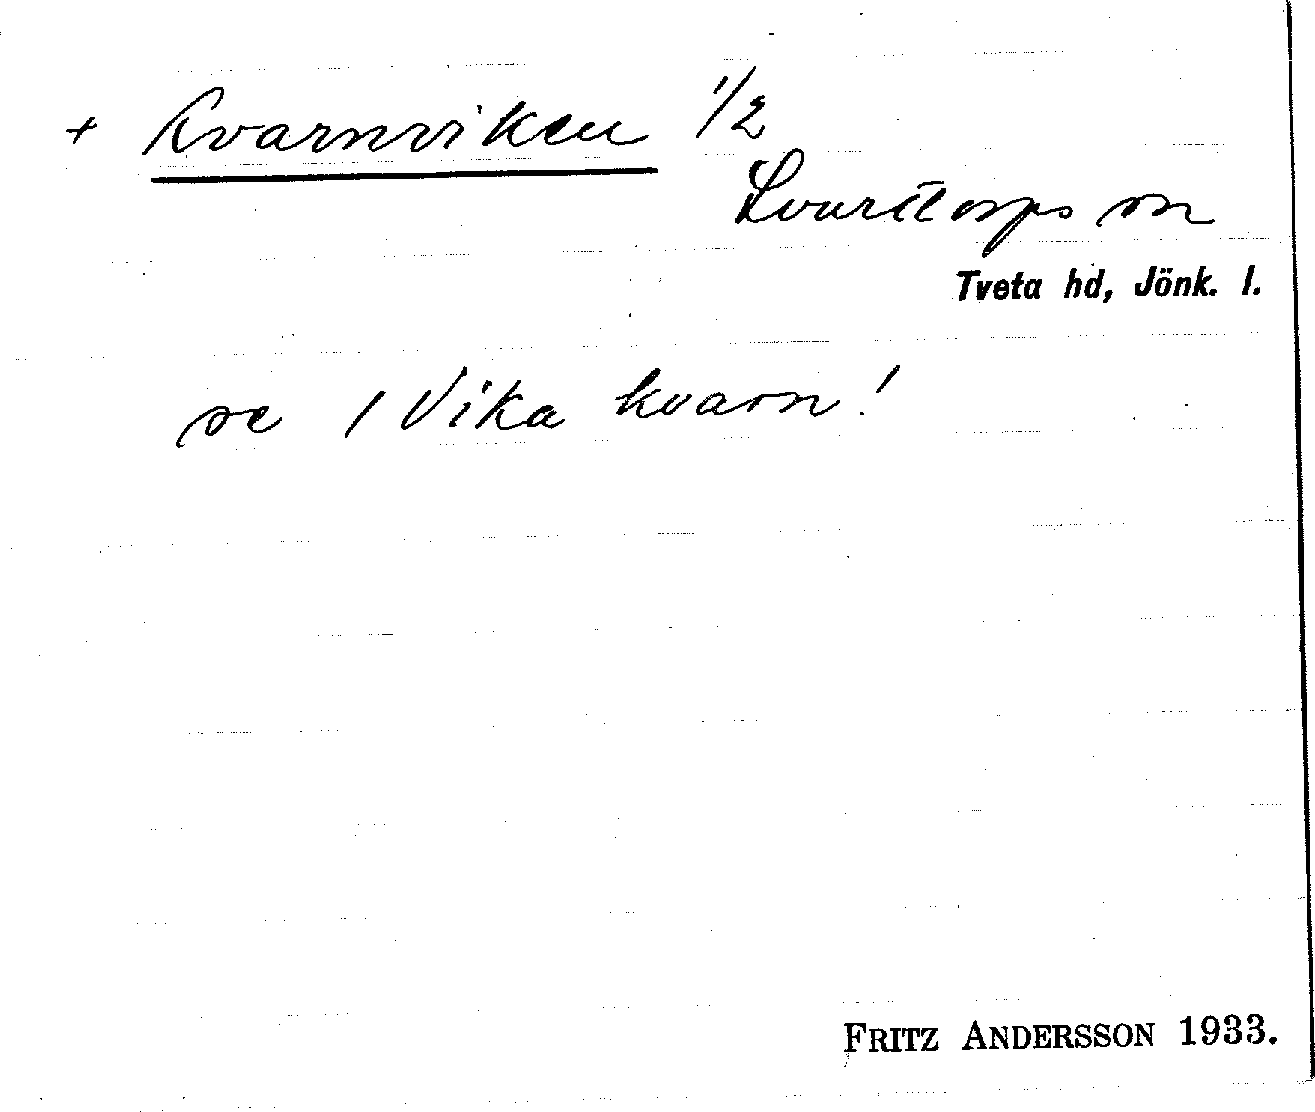 + Kvarnviken 1/2
Lovurdtorps sn
Tveta hd, Jönk. l.
se 1 Vika kvarn!
FRITZ ANDERSSON 1933.